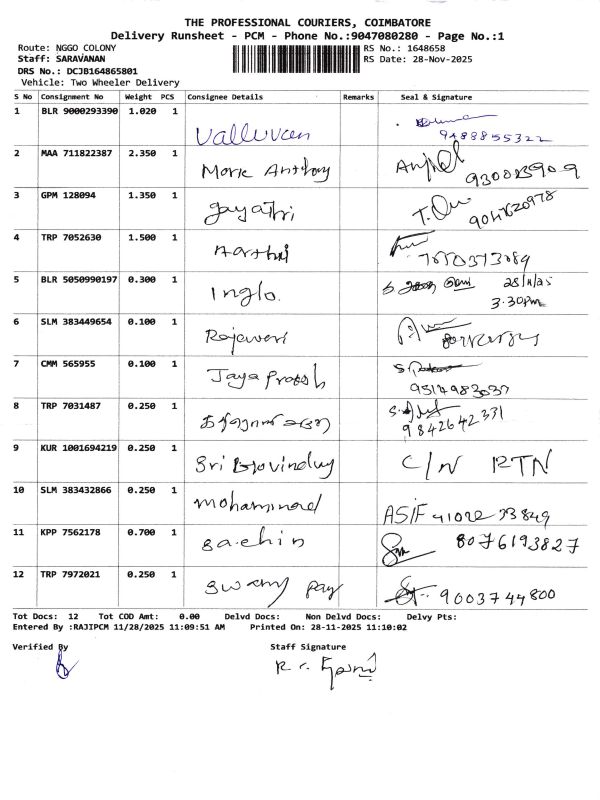 THE PROFESSIONAL COURIERS, COIMBATORE
Delivery Runsheet - PCM - Phone No.:9047080280 - Page No.:1
Route: NGGO COLONY RS No.: 1648658
Staff: SARAVANAN RS Date: 28-Nov-2025
DRS No.: DCJB164865801
Vehicle: Two Wheeler Delivery
S No Consignment No Weight PCS Consignee Details Remarks Seal & Signature
1 BLR 9000293390 1.020 1 Valluvan 9488855322
2 MAA 711822387 2.350 1
3 GPM 128094 1.350 1 Gayathri
4 TRP 7052630 1.500 1 Aarthi
5 BLR 5050990197 0.300 1 Inglo 28/11/25
3:30pm
6 SLM 383449654 0.100 1 Rajaweri
7 CMM 565955 0.100 1 Jaya Prakash
8 TRP 7031487 0.250 1 9842642331
9 KUR 1001694219 0.250 1 Sri C/N RTN
10 SLM 383432866 0.250 1 mohammad ASIF
11 KPP 7562178 0.700 1 Sachin 8076193827
12 TRP 7972021 0.250 1 Swamy 9003744800
Tot Docs: 12 Tot COD Amt: 0.00 Delvd Docs: Non Delvd Docs: Delvy Pts:
Entered By :RAJIPCM 11/28/2025 11:09:51 AM Printed On: 28-11-2025 11:10:02
Verified By Staff Signature